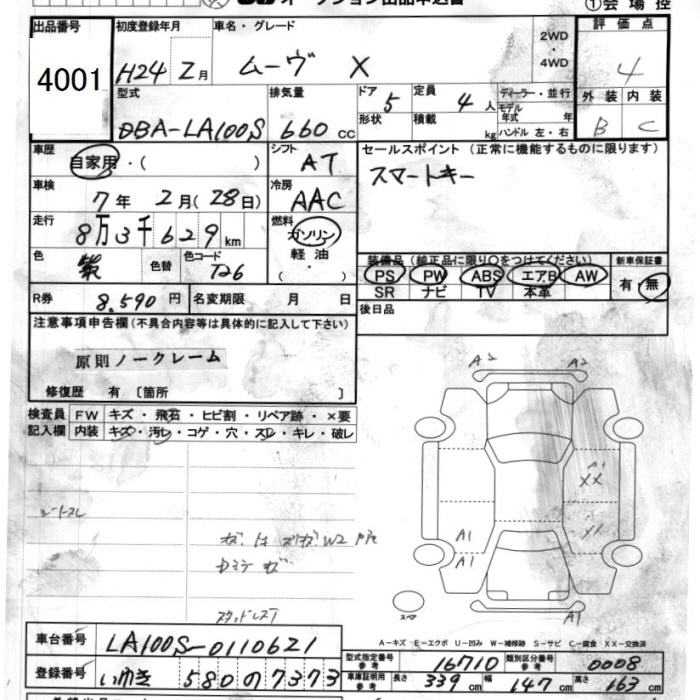 オークション出品申込書
①会場控
出品番号 初度登録年月 車名・グレード 2WD・4WD 評価点
4001 H24 2月 ムーヴ X 4
型式 排気量 ドア 5 定員 4人 ディーラー・並行 外装 内装
モデル年式 年
DBA-LA100S 660cc 形状 積載 kg ハンドル 左・右 B C
車歴 自家用・( ) シフト AT セールスポイント (正常に機能するものに限ります)
車検 7年 2月(28日) 冷房 AAC スマートキー
走行 8万3千629km 燃料 ガソリン・軽油・
色 紫 色替 色コード T26 装備品 (純正品に限り○をつけてください) 新車保証書
PS PW ABS エアB AW 有・無
SR ナビ TV 本革
R券 8,590円 名変期限 月 日 後日品
注意事項申告欄(不具合内容等は具体的に記入して下さい)
原則ノークレーム
修復歴 有 〔箇所 〕
検査員 FW キズ・飛石・ヒビ割・リペア跡・×要
記入欄 内装 キズ・汚レ・コゲ・穴・スレ・キレ・破レ
A2 A2
A1
XX
XX
シートスレ
A1
A1
スタッドレス
A1
スペア
A-キズ E-エクボ U-凹み W-補修跡 S-サビ C-腐食 XX-交換済
車台番号 LA100S-0110621
型式指定番号 参考 16710 類別区分番号 参考 0008
登録番号 いわき 580 の 7373
車庫証明用 参考 長さ 339cm 幅 147cm 高さ 163cm